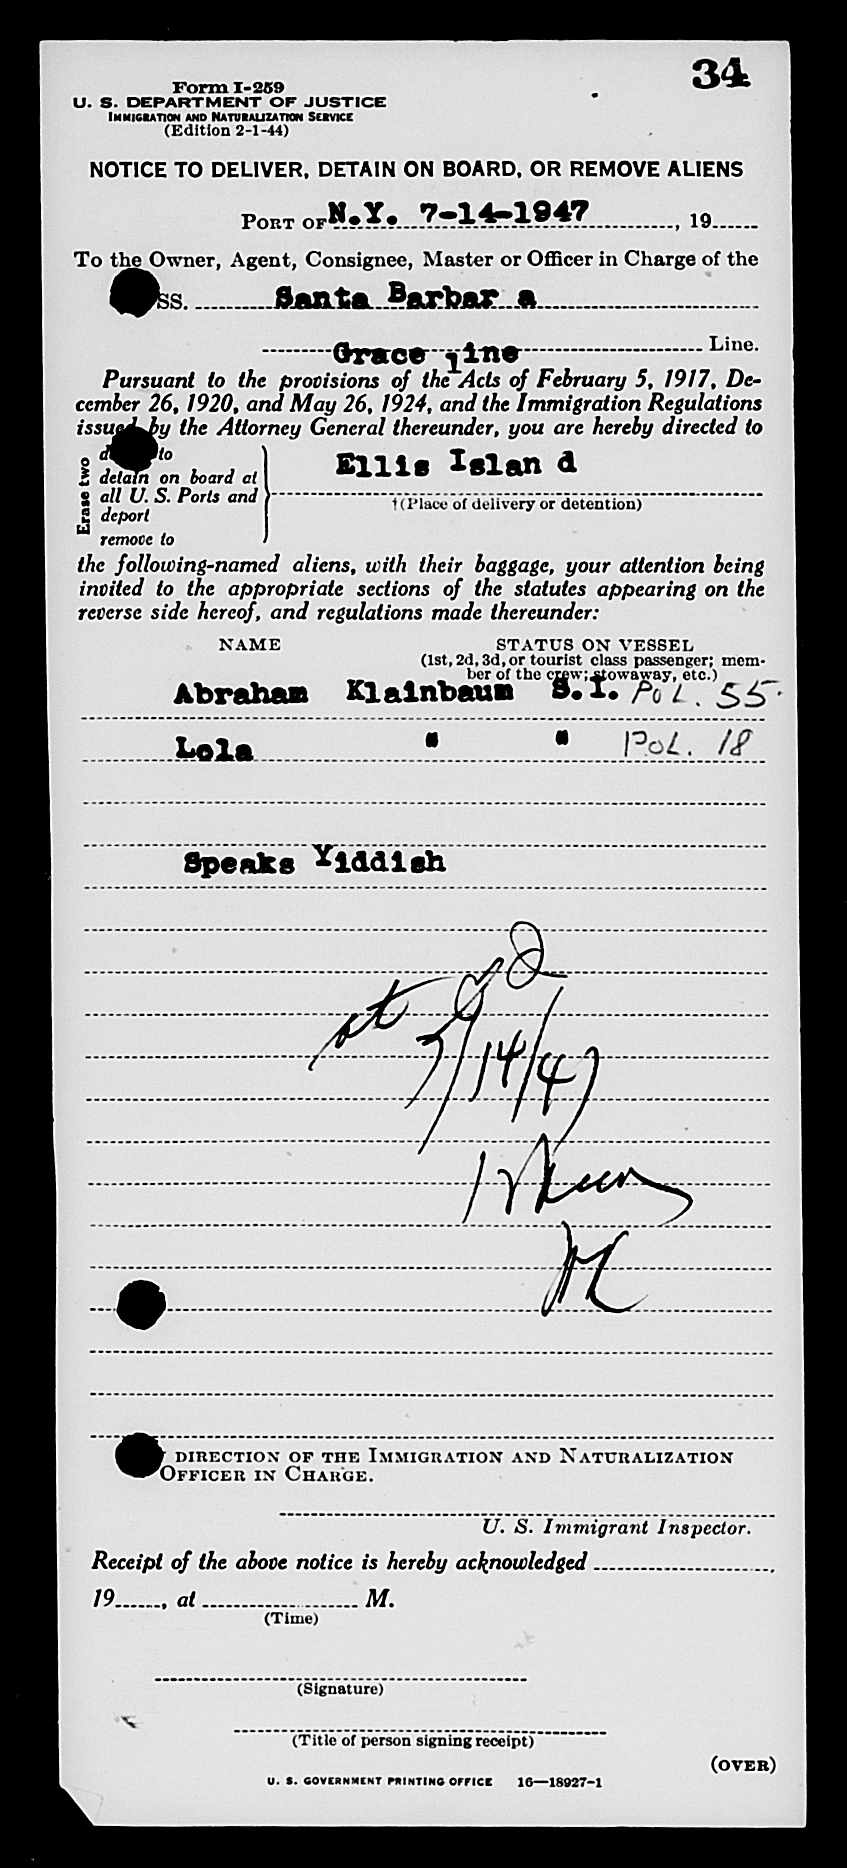 34
Form I-259
U. S. DEPARTMENT OF JUSTICE
IMMIGRATION AND NATURALIZATION SERVICE
(Edition 2-1-44)
NOTICE TO DELIVER, DETAIN ON BOARD, OR REMOVE ALIENS
PORT OF N.Y. 7-14-1947, 19
To the Owner, Agent, Consignee, Master or Officer in Charge of the
SS. Santa Barbar a
Grace line Line.
Pursuant to the provisions of the Acts of February 5, 1917, De-
cember 26, 1920, and May 26, 1924, and the Immigration Regulations
issued by the Attorney General thereunder, you are hereby directed to
Erase two
to
detain on board at
all U. S. Ports and
deport
remove to
Ellis Islan d
†(Place of delivery or detention)
the following-named aliens, with their baggage, your attention being
invited to the appropriate sections of the statutes appearing on the
reverse side hereof, and regulations made thereunder:
NAME STATUS ON VESSEL
(1st, 2d, 3d, or tourist class passenger; mem-
ber of the crew; stowaway, etc.)
Abraham Klainbaum S.I. POL. 55
Lola " " POL. 18
Speaks Yiddish
7/14/47
DIRECTION OF THE IMMIGRATION AND NATURALIZATION
OFFICER IN CHARGE.
U. S. Immigrant Inspector.
Receipt of the above notice is hereby acknowledged
19, at M.
(Time)
(Signature)
(Title of person signing receipt)
(OVER)
U. S. GOVERNMENT PRINTING OFFICE 16—18927-1